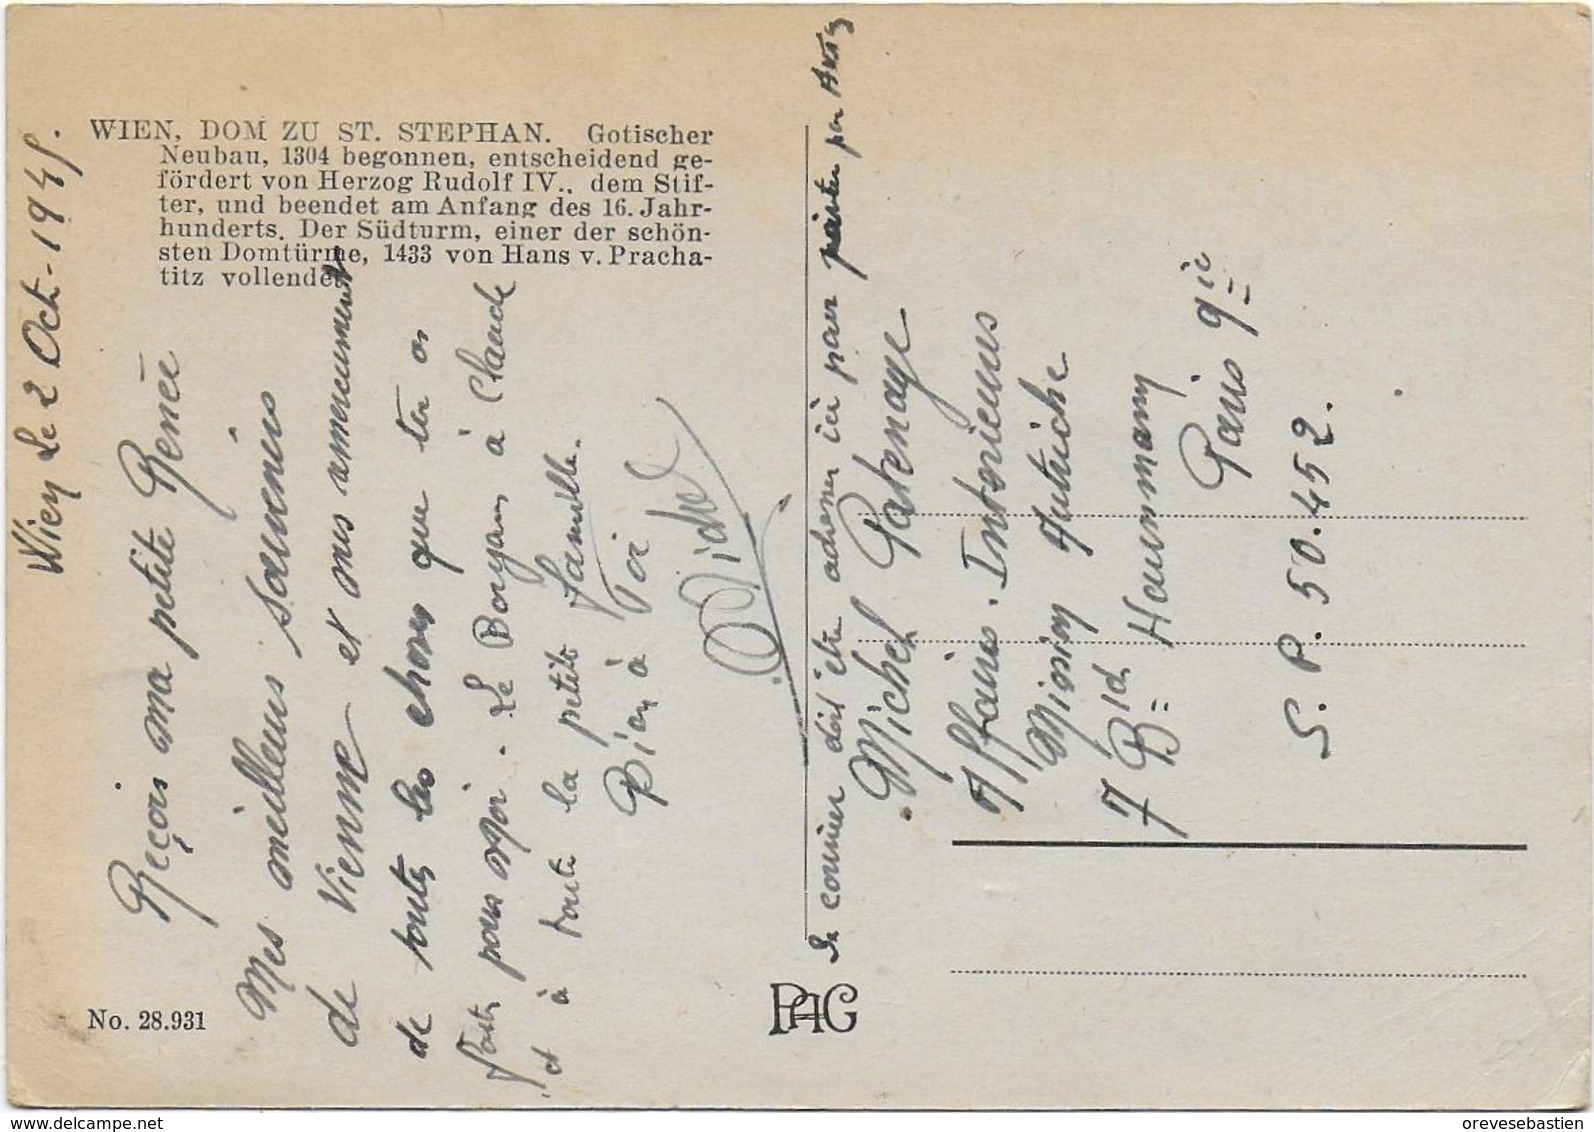 WIEN, DOM ZU ST. STEPHAN. Gotischer
Neubau, 1304 begonnen, entscheidend ge-
fördert von Herzog Rudolf IV., dem Stif-
ter, und beendet am Anfang des 16. Jahr-
hunderts. Der Südturm, einer der schön-
sten Domtürme, 1433 von Hans v. Pracha-
titz vollendet.
Wien le 2 Oct. 1945.
Reçois ma petite Renée
Mes meilleurs souvenirs
de Vienne et mes remerciements
de toutes les choses que tu as
faites pour moi. Le Bonjour à Claude
et à toute la petite famille.
Bien à Toi
Michel
Le courrier doit être adressé ici pour par Avion
Michel Patenage
Affaires Intérieures
Mission Autriche
7 Bld Haussmann
Paris 9ie
S. P. 50.452.
No. 28.931
PAG
delcampe.net
orevesebastien